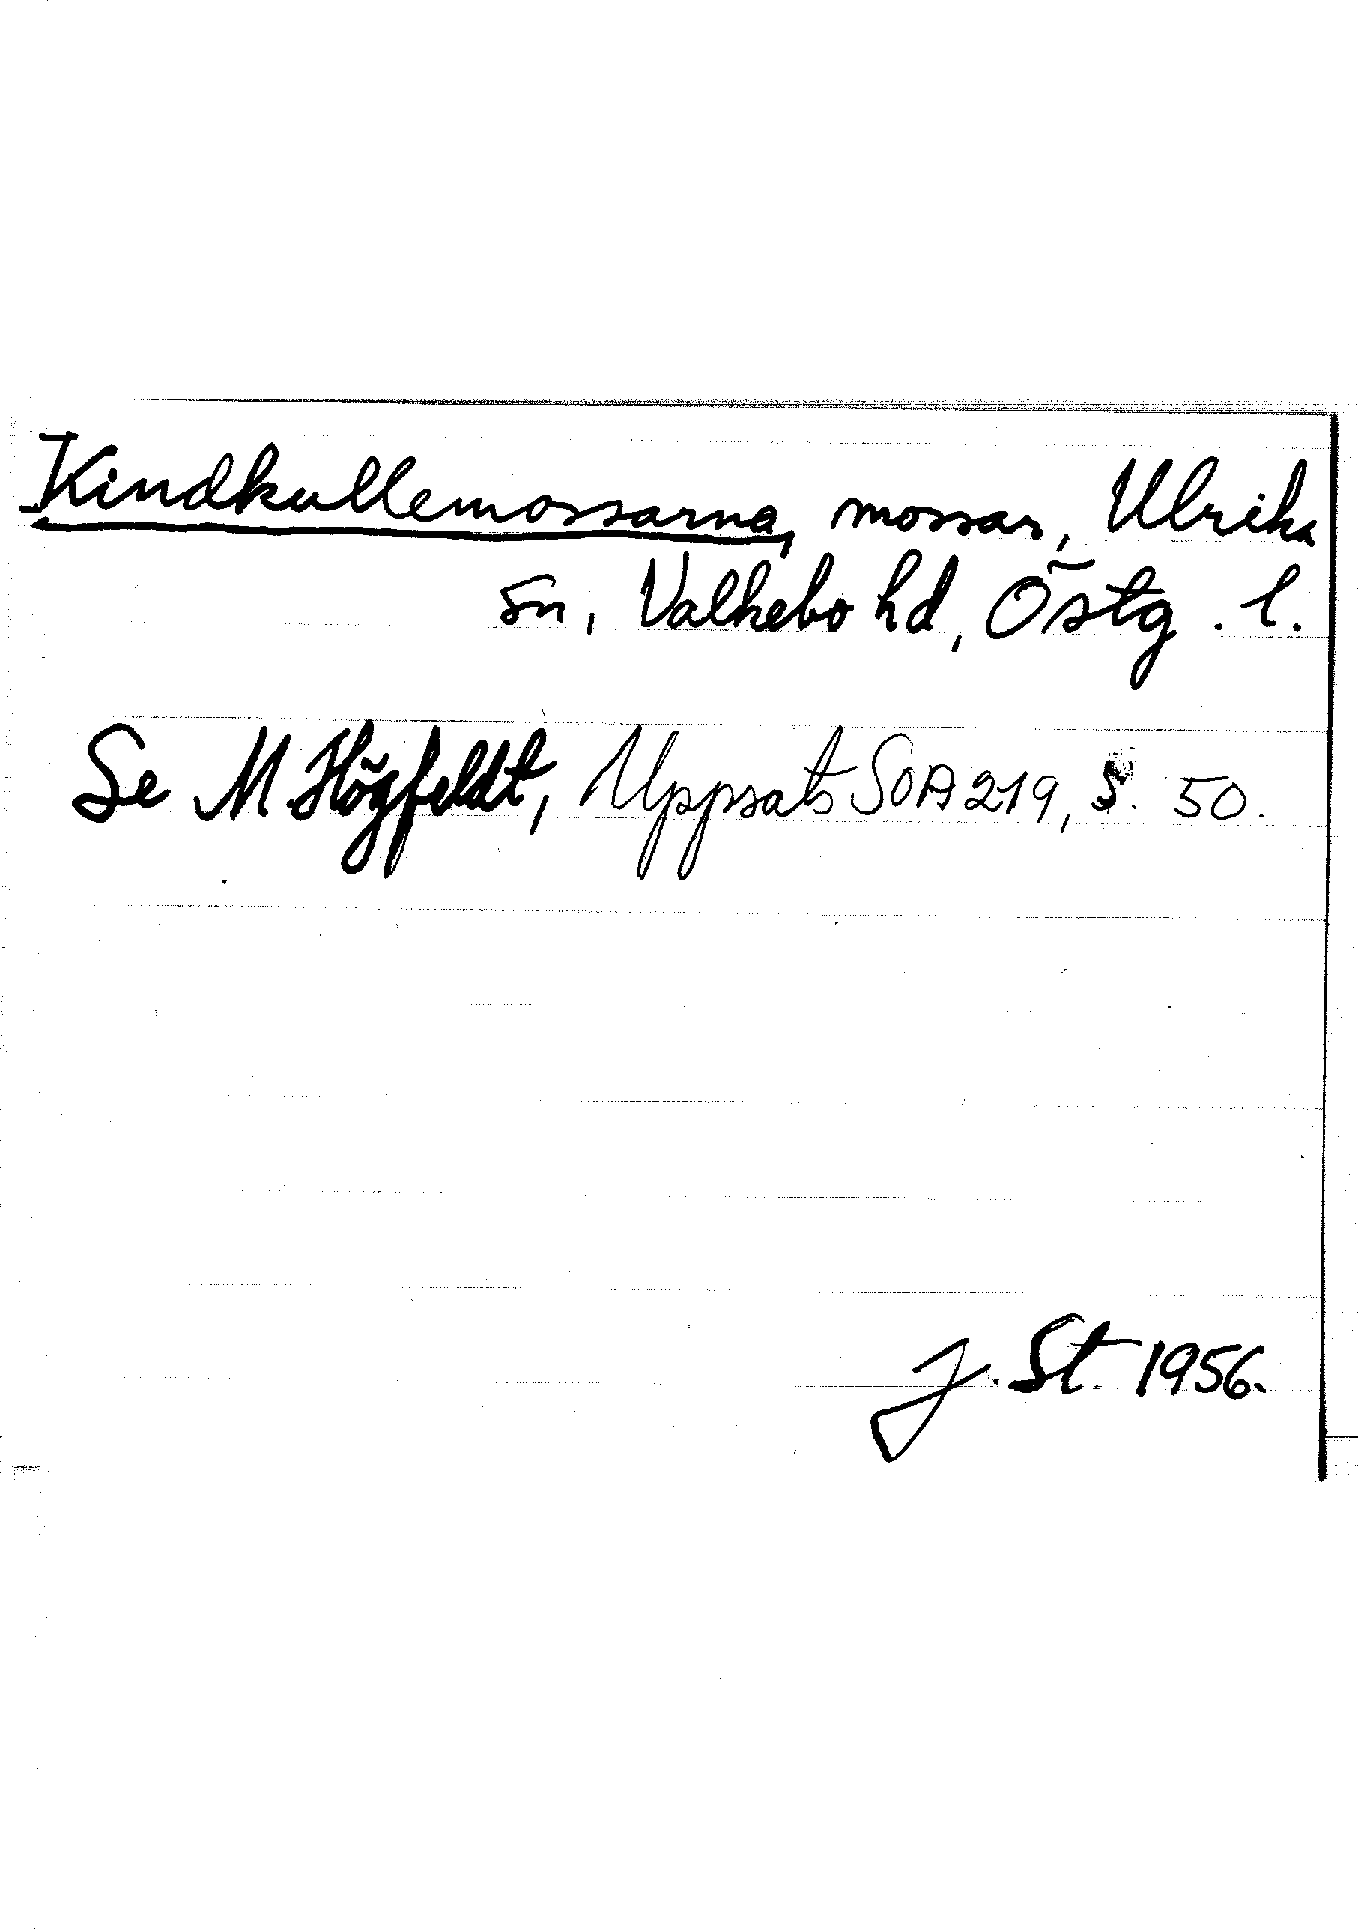 Kindkullemossarna, mossar, Ulrika
sn, Valkebo hd, Östg. l.
Se M. Högfeldt, Uppsats SOA 219, s. 50.
J. St. 1956.